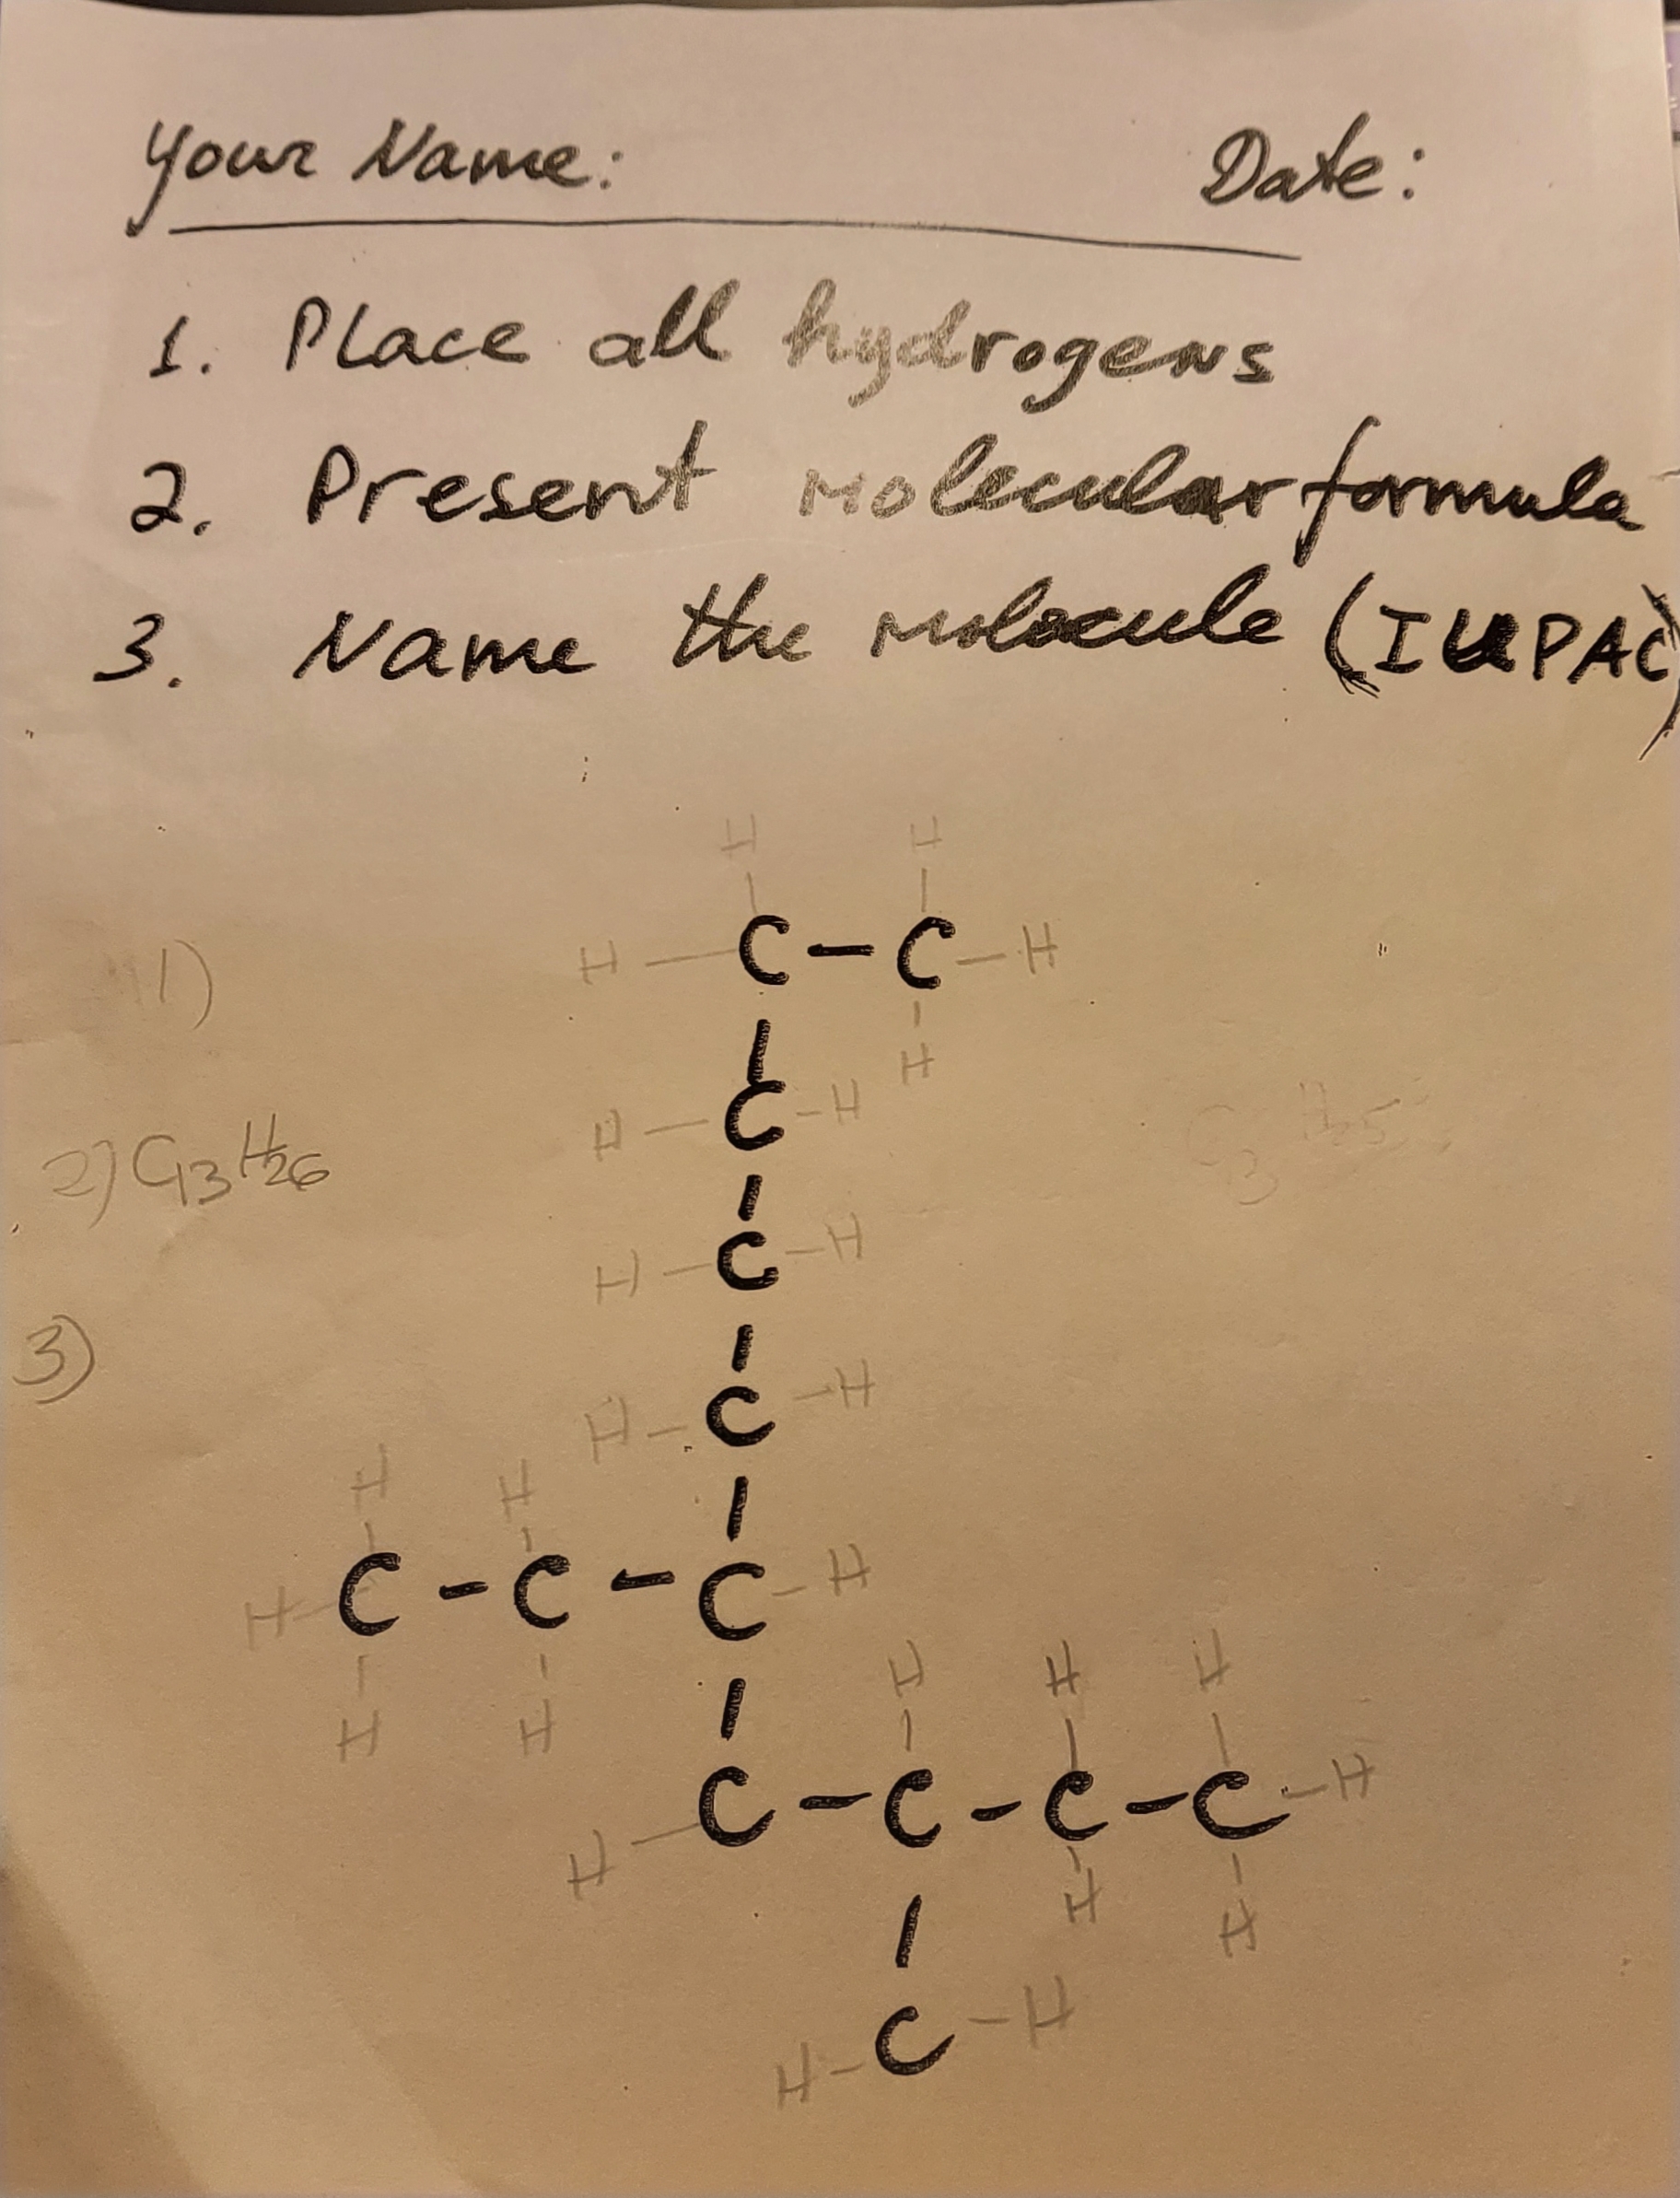 Your Name: Date:
1. Place all hydrogens
2. Present molecular formula
3. Name the molecule (IUPAC)
H H
1) H — C - C - H
H
H - C - H
2) C13H26
H - C - H
3)
H - C - H
H H
H - C - C - C - H
H H H
H H
H - C - C - C - C - H
H H
H - C - H